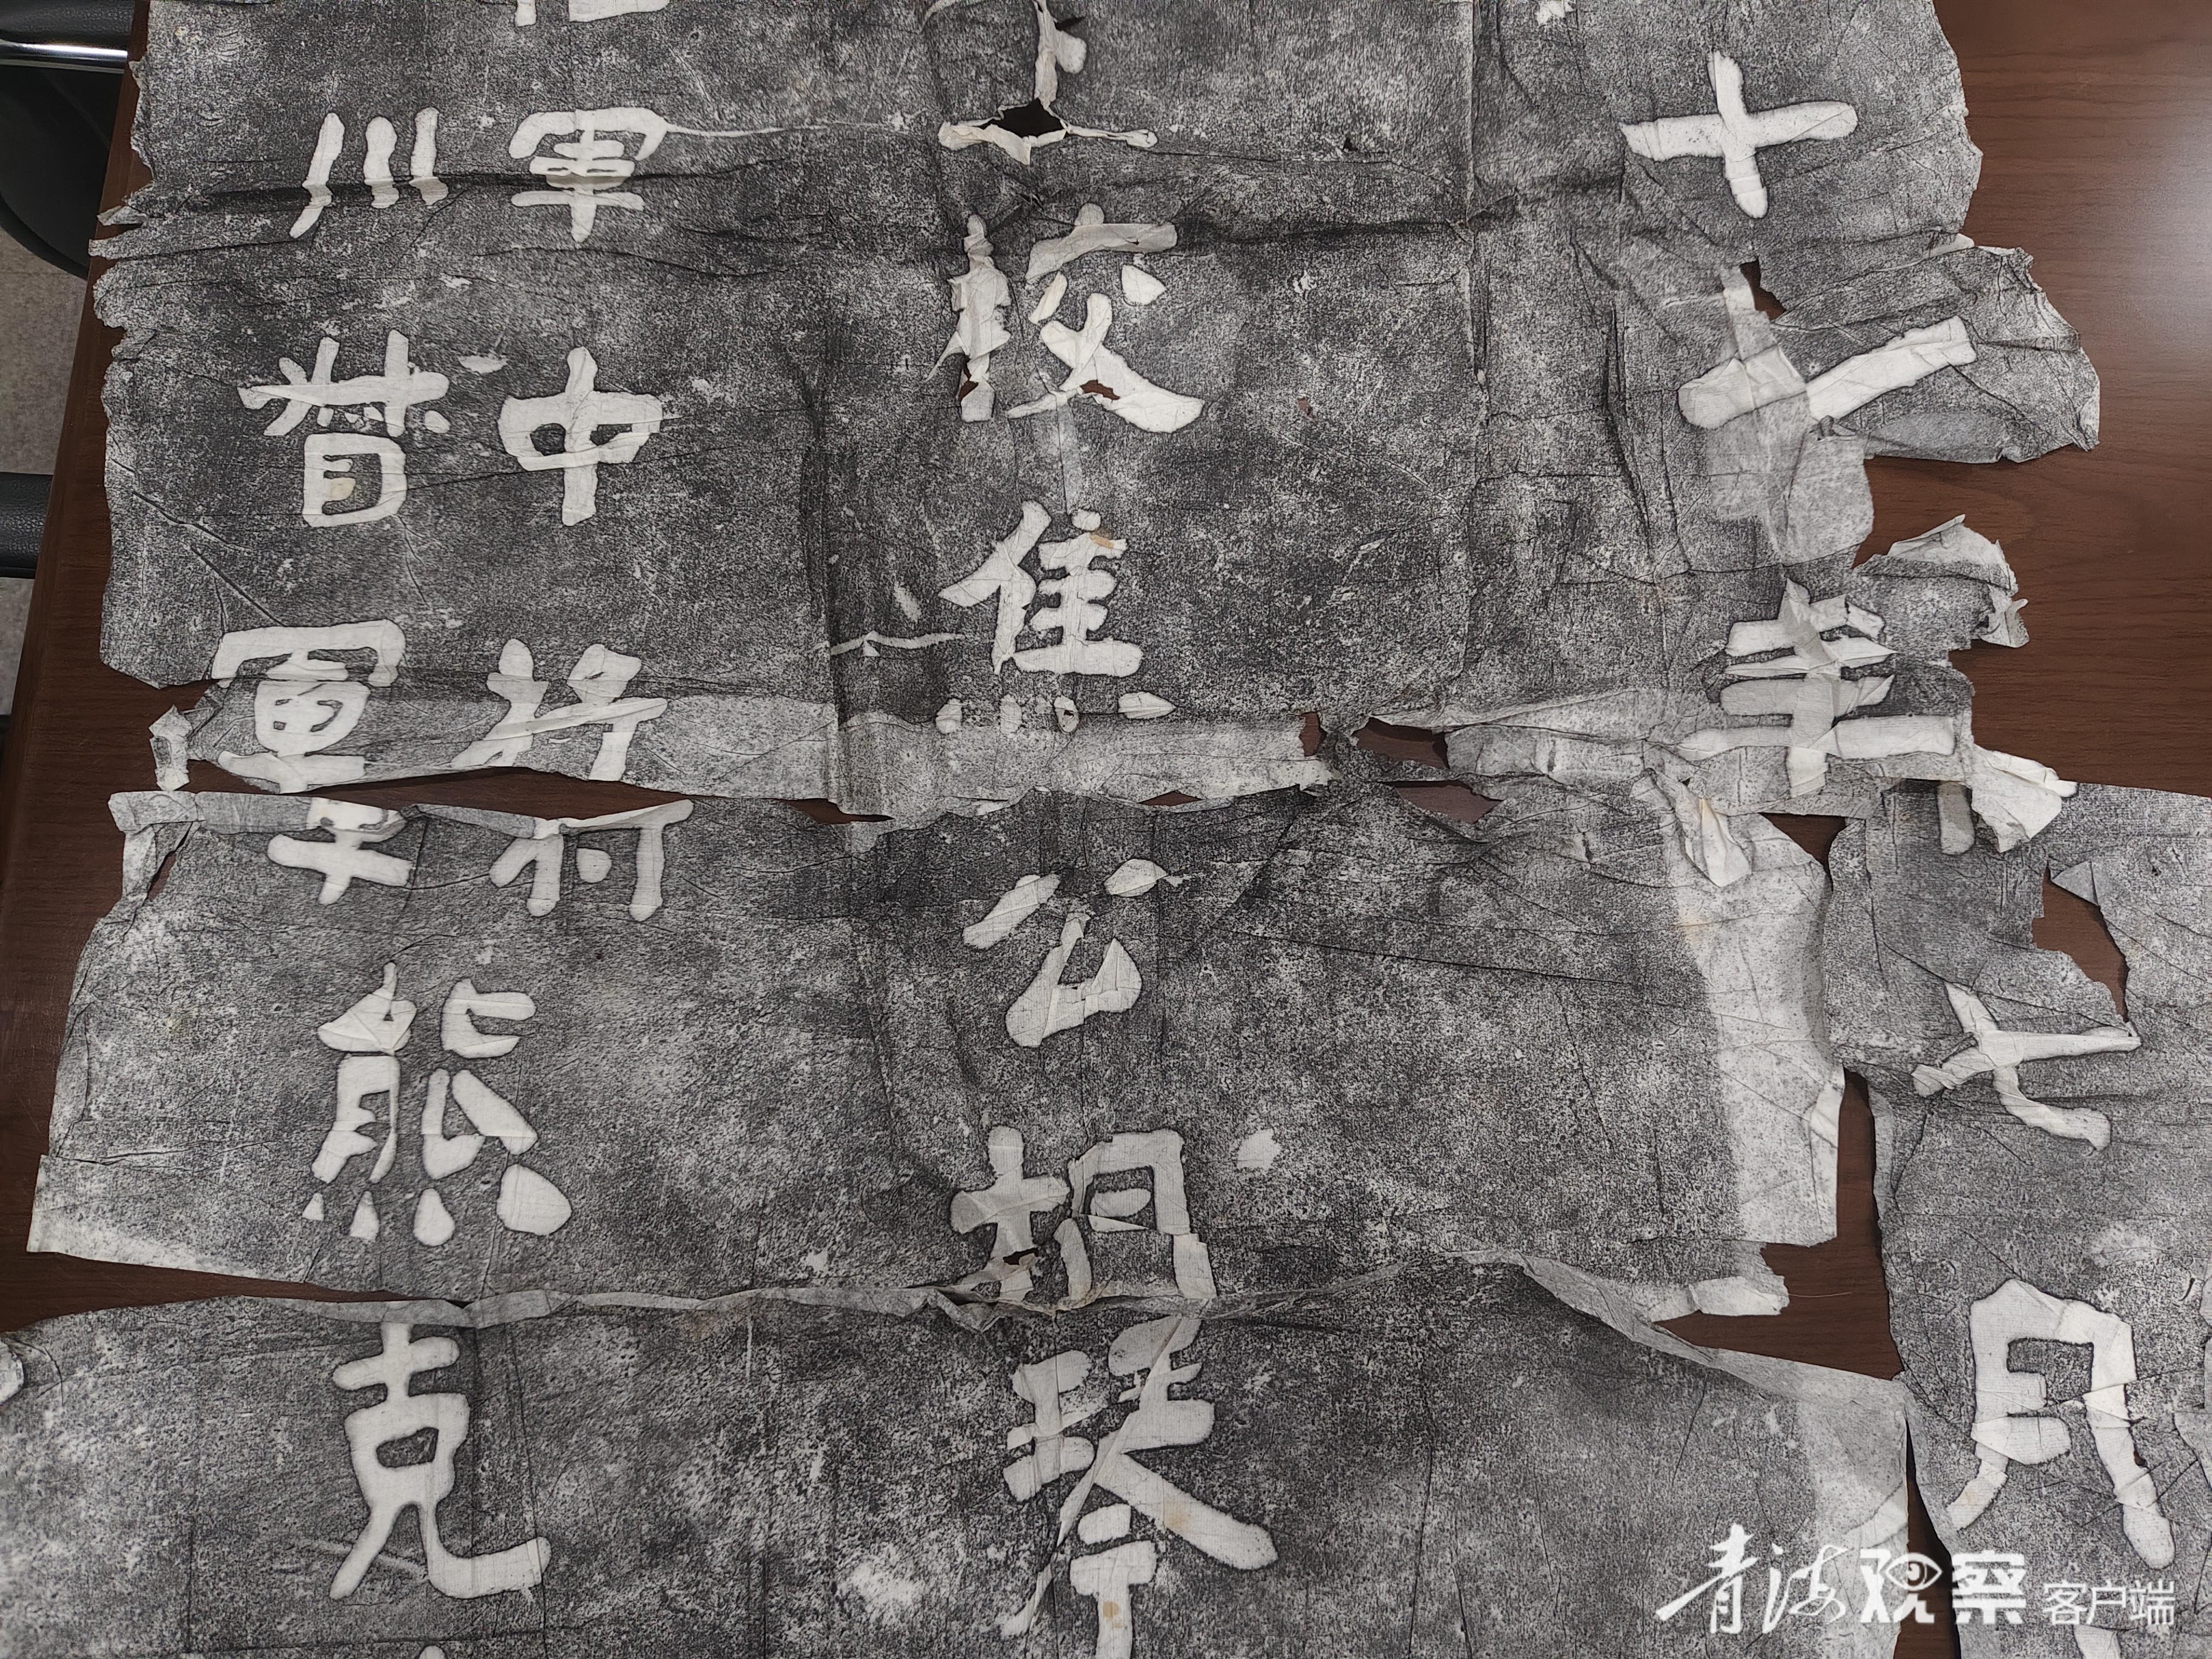 十一年七月
上校焦公桐琴
軍中將
川督軍熊克
青海观察 客户端